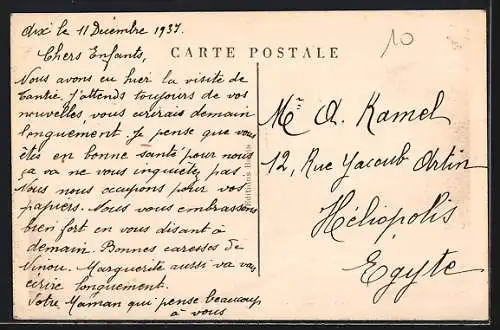 Aix le 11 Décembre 1937.
Chers Enfants,
CARTE POSTALE
10
Nous avons eu hier la visite de
tante. J'attends toujours de vos
nouvelles, vous écrirais demain
longuement. Je pense que vous
êtes en bonne santé pour nous
ça va ne vous inquiétez pas.
Nous nous occupons pour vos
papiers. Nous vous embrassons
bien fort en vous disant à
demain. Bonnes caresses de
Ninou. Marguerite aussi va vous
écrire longuement.
Votre Maman qui pense beaucoup
à vous
Editions
Mr. A. Kamel
12, Rue Yacoub Artin
Héliopolis
Egypte